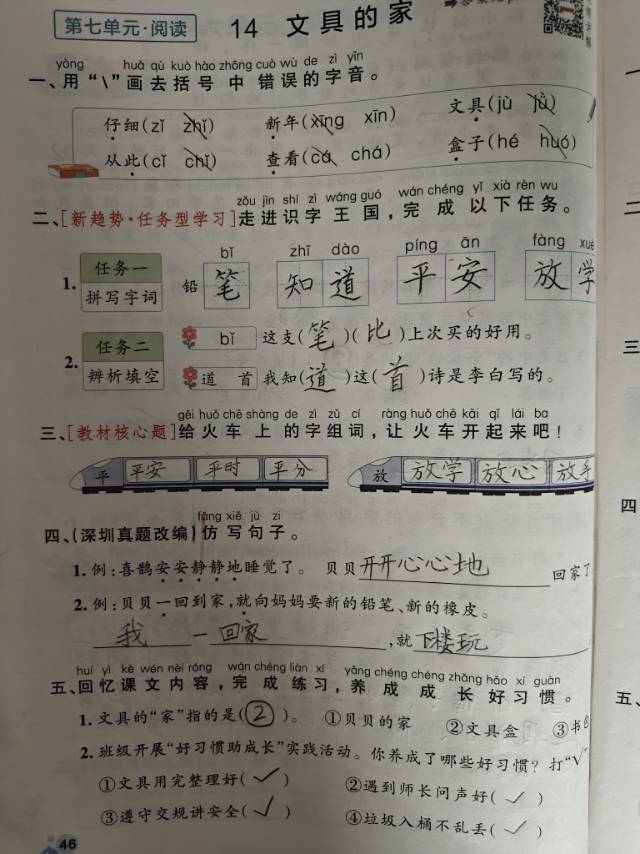 第七单元·阅读 14 文具的家
yòng huà qù kuò hào zhōng cuò wù de zì yīn
一、用“\”画去括号中错误的字音。
仔细(zǐ zhǐ) 新年(xīng xīn) 文具(jù jǜ)
从此(cǐ chǐ) 查看(cá chá) 盒子(hé huó)
zǒu jìn shí zì wáng guó wán chéng yǐ xià rèn wu
二、[新趋势·任务型学习]走进识字王国，完成以下任务。
bǐ zhī dào píng ān fàng xué
1. 任务一 拼写字词 铅笔 知道 平安 放学
2. 任务二 辨析填空
bǐ 这支(笔)(比)上次买的好用。
道 首 我知(道)这(首)诗是李白写的。
gěi huǒ chē shàng de zì zǔ cí ràng huǒ chē kāi qǐ lái ba
三、[教材核心题]给火车上的字组词，让火车开起来吧！
平 平安 平时 平分 放 放学 放心 放手
fǎng xiě jù zi
四、(深圳真题改编)仿写句子。
1. 例：喜鹊安安静静地睡觉了。 贝贝开开心心地回家了
2. 例：贝贝一回到家，就向妈妈要新的铅笔、新的橡皮。
我一回家，就下楼玩
huí yì kè wén nèi róng wán chéng liàn xí yǎng chéng chéng zhǎng hǎo xí guàn
五、回忆课文内容，完成练习，养成成长好习惯。
1. 文具的“家”指的是(②)。 ①贝贝的家 ②文具盒 ③书
2. 班级开展“好习惯助成长”实践活动。你养成了哪些好习惯？打“√”
①文具用完整理好(√) ②遇到师长问声好(√)
③遵守交规讲安全(√) ④垃圾入桶不乱丢(√)
46
一
二
三
四
五、